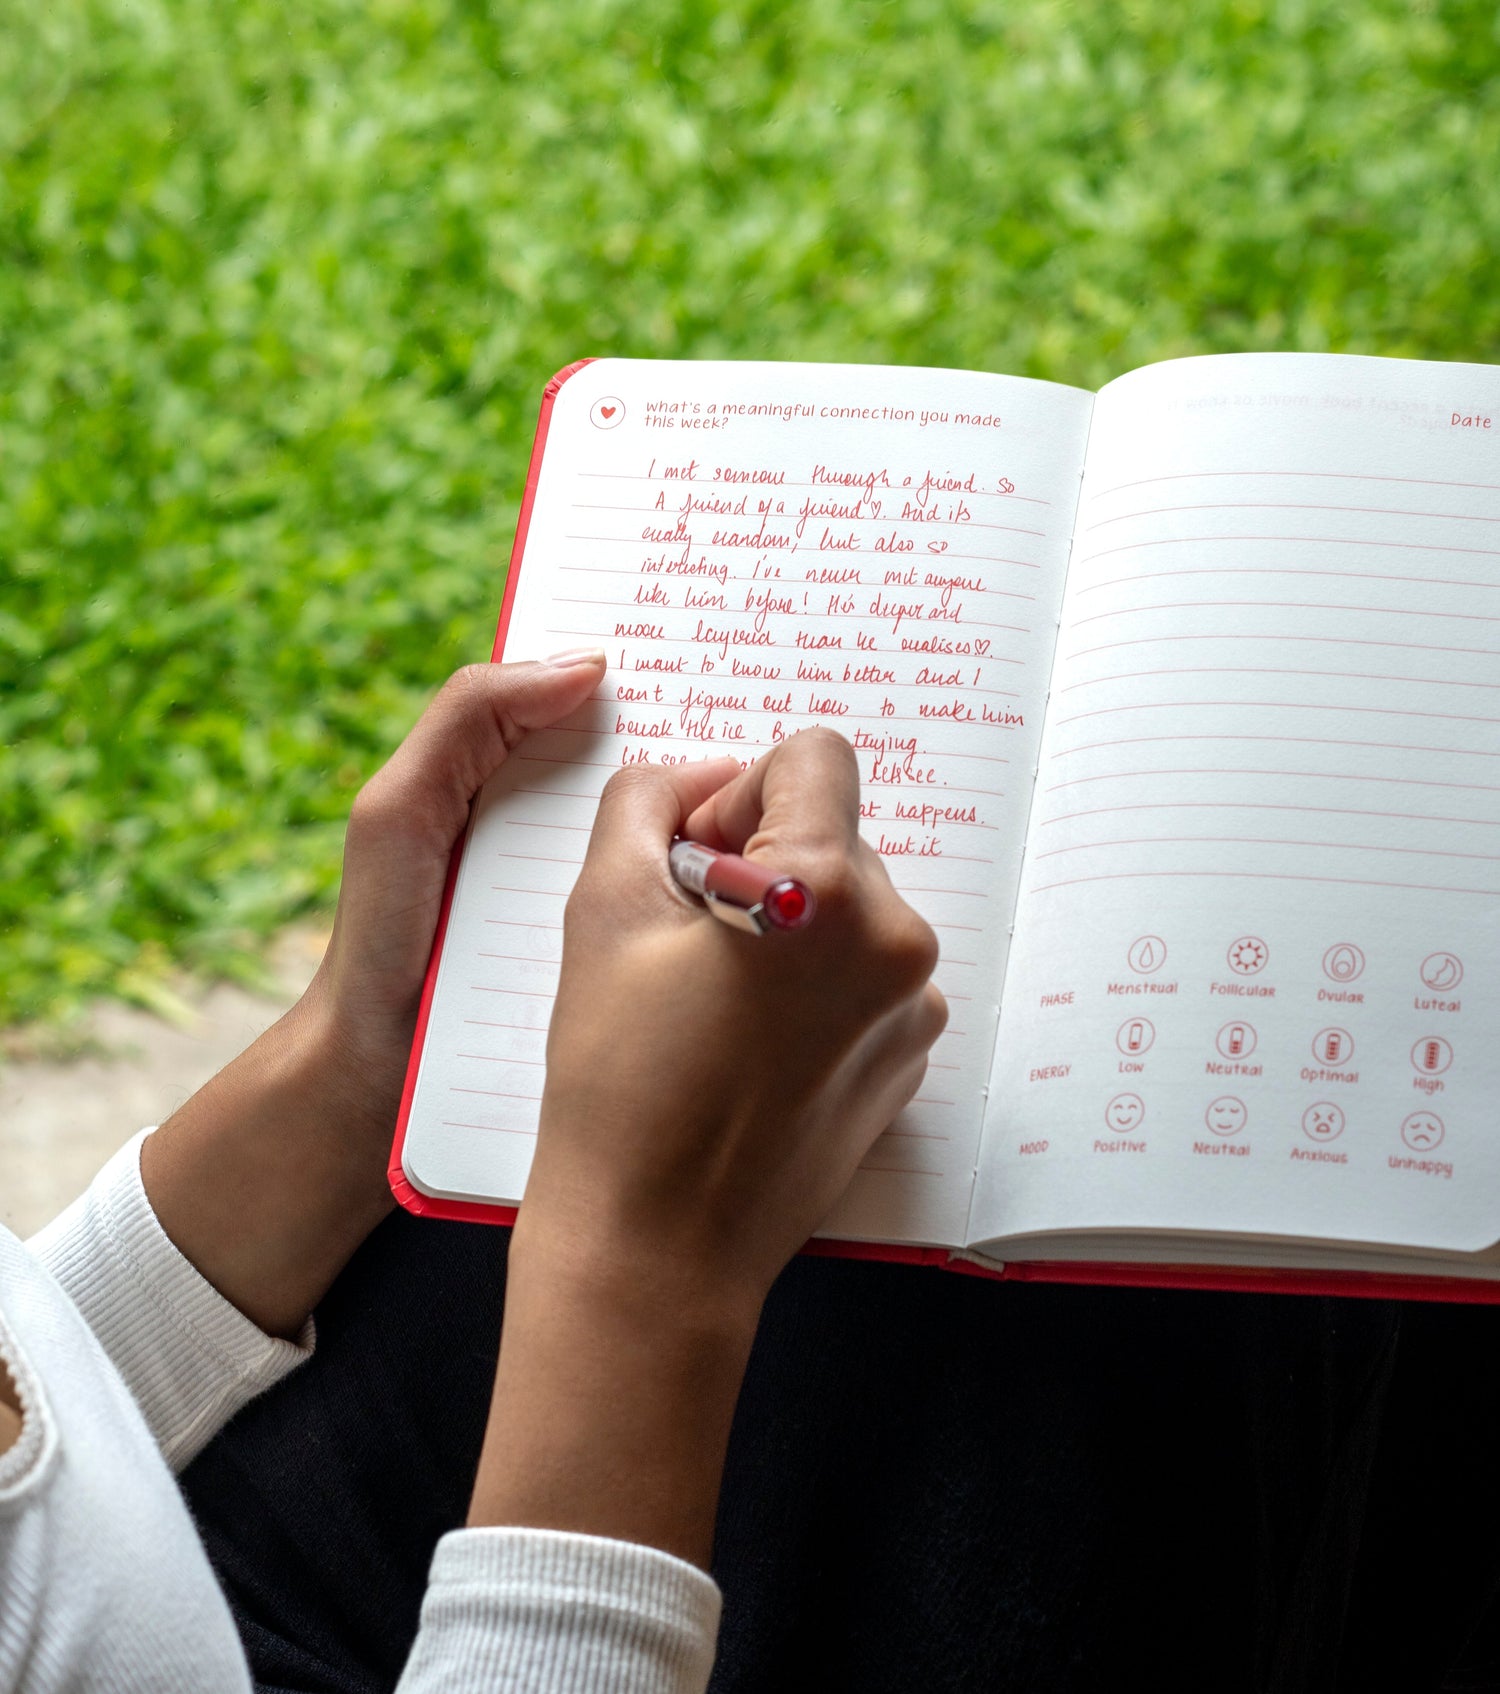 what's a meaningful connection you made
this week?
I met someone through a friend. So
A friend of a friend♡. And its
really random, but also so
interesting. I've never met anyone
like him before! He's deeper and
more layered than he realises♡.
I want to know him better and I
can't figure out how to make him
break the ice. But trying.
lets see lets see.
happens.
but it
Date
PHASE Menstrual Follicular Ovular Luteal
ENERGY Low Neutral Optimal High
MOOD Positive Neutral Anxious Unhappy